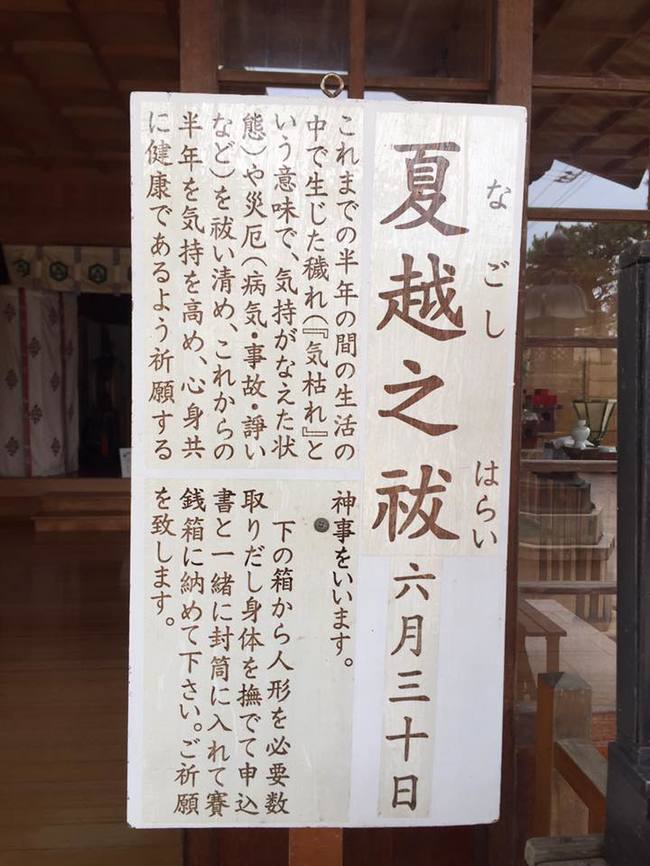 夏越之祓 六月三十日
なごし はらい
これまでの半年の間の生活の
中で生じた穢れ(『気枯れ』と
いう意味で、気持がなえた状
態)や災厄(病気・事故・諍い
など)を祓い清め、これからの
半年を気持を高め、心身共
に健康であるよう祈願する
神事をいいます。
下の箱から人形を必要数
取りだし身体を撫でて申込
書と一緒に封筒に入れて賽
銭箱に納めて下さい。ご祈願
を致します。